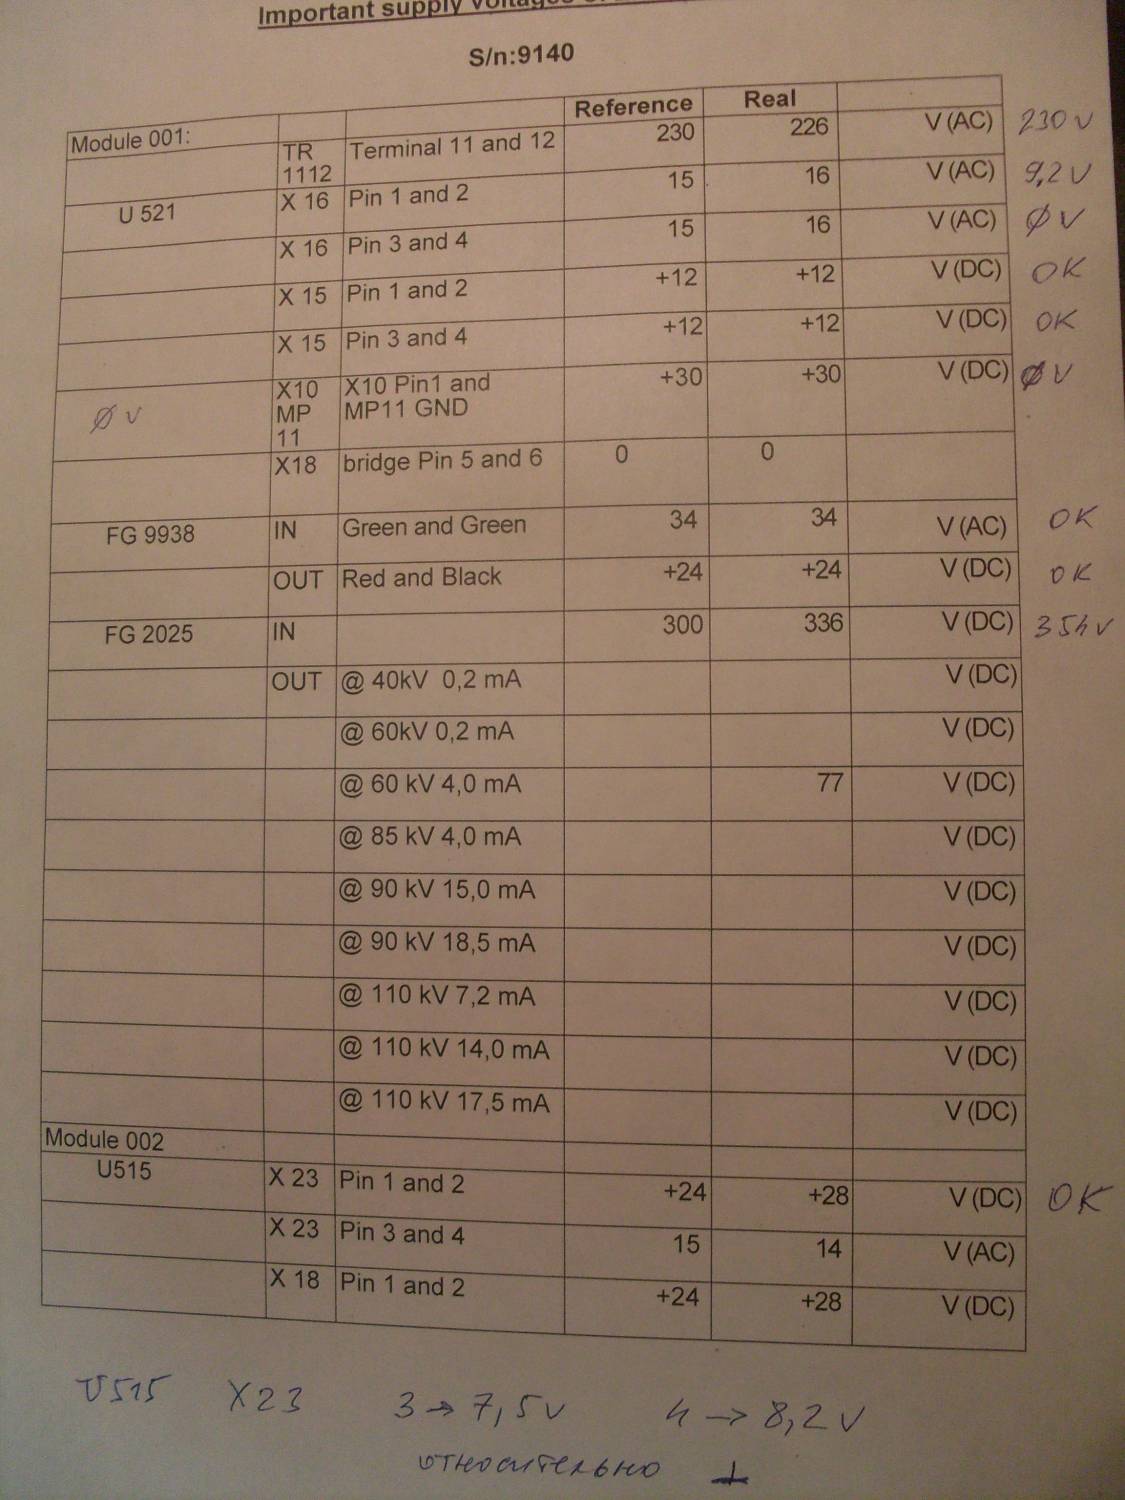 Important supply voltages
S/n:9140
Reference Real
Module 001:
TR 1112 Terminal 11 and 12 230 226 V (AC) 230 V
U 521 X 16 Pin 1 and 2 15 16 V (AC) 9,2 V
X 16 Pin 3 and 4 15 16 V (AC) Ø V
X 15 Pin 1 and 2 +12 +12 V (DC) OK
X 15 Pin 3 and 4 +12 +12 V (DC) OK
Ø V X10 MP 11 X10 Pin1 and MP11 GND +30 +30 V (DC) Ø V
X18 bridge Pin 5 and 6 0 0
FG 9938 IN Green and Green 34 34 V (AC) OK
OUT Red and Black +24 +24 V (DC) OK
FG 2025 IN 300 336 V (DC) 354 V
OUT @ 40kV 0,2 mA V (DC)
@ 60kV 0,2 mA V (DC)
@ 60 kV 4,0 mA 77 V (DC)
@ 85 kV 4,0 mA V (DC)
@ 90 kV 15,0 mA V (DC)
@ 90 kV 18,5 mA V (DC)
@ 110 kV 7,2 mA V (DC)
@ 110 kV 14,0 mA V (DC)
@ 110 kV 17,5 mA V (DC)
Module 002
U515 X 23 Pin 1 and 2 +24 +28 V (DC) OK
X 23 Pin 3 and 4 15 14 V (AC)
X 18 Pin 1 and 2 +24 +28 V (DC)
U515 X23 3 → 7,5 V 4 → 8,2 V
относительно ⊥